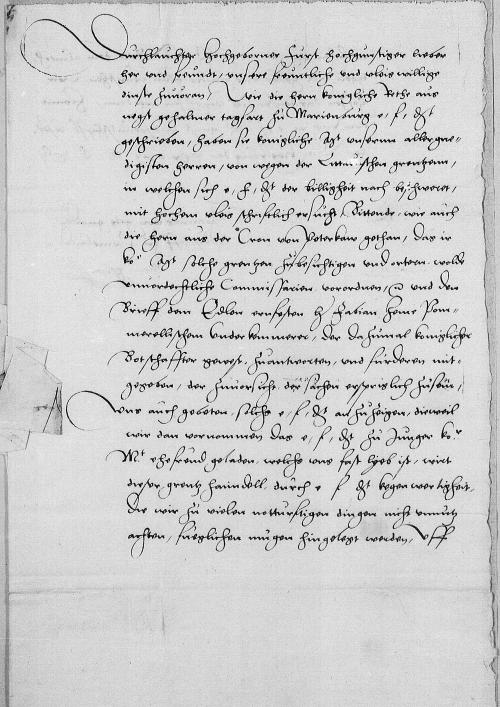 Durchlauchter Hochgeborner Furst hochgunstiger lieber
her und freundt, unsere freuntliche und vleiswillige
dinste zuuoran, Wie die hern konigliche Rethe aus
negst gehalner tagfart zu Marienburg e. f. dt
geschrieben, haben sie konigliche Mt unsernn allergne-
digisten herren, von wegen der Littauischen grentzenn,
in welchen sich e. f. dt der billigheit nach beschweret,
mit hochem vleis schriftlich ersucht, Bittende, wie auch
die hern aus der Cron von Peterkaw gethan, das ir
ko. Mt solche grentzen zubesichtigen und ortern wolde
unuordechtliche Commissarien vorordnen, und den
Brieff dem Edlen ernfesten h Fabian Heme Pom-
merellischem underkemmerer, der dazumal koniglicher
Botschaffter gewest, zuantworten, und furderen mit-
gegeben, der zuuorsicht, der sachen ersprislich zusein,
Uns auch geboten, solchs e. f. dt anzuzeigen, dieweil
wir dan vornommen das e. f. dt zu Junger ko.
Mt ehefreud geladen, welchs uns fast lyeb ist, wirt
dieser grentz hanndell durch e f dt kegenwertigheit,
die wir zu vielen notturftigen dingen nicht unnutz
achten, fueglichen mugen hingelegt werden, Uff